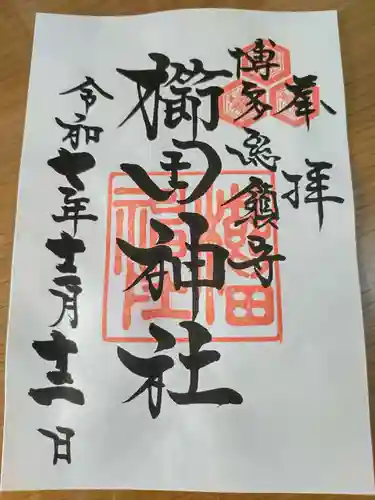 奉拝
博多総鎮守
櫛田神社
令和七年十二月十三日
櫛田神社